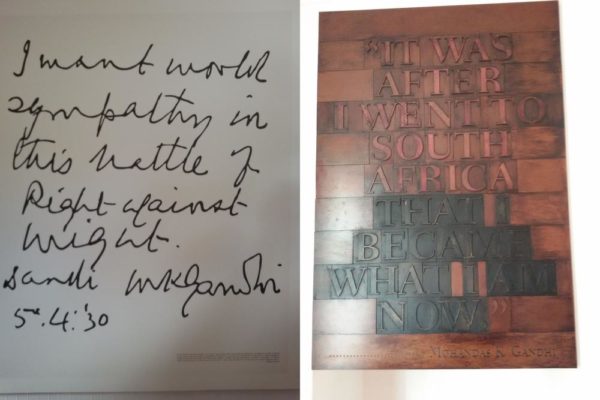 I want world
sympathy in
this battle of
Right against
might.
Dandi MKGandhi
5.4.'30
"IT WAS
AFTER
I WENT TO
SOUTH
AFRICA
THAT I
BECAME
WHAT I AM
NOW."
MOHANDAS K. GANDHI